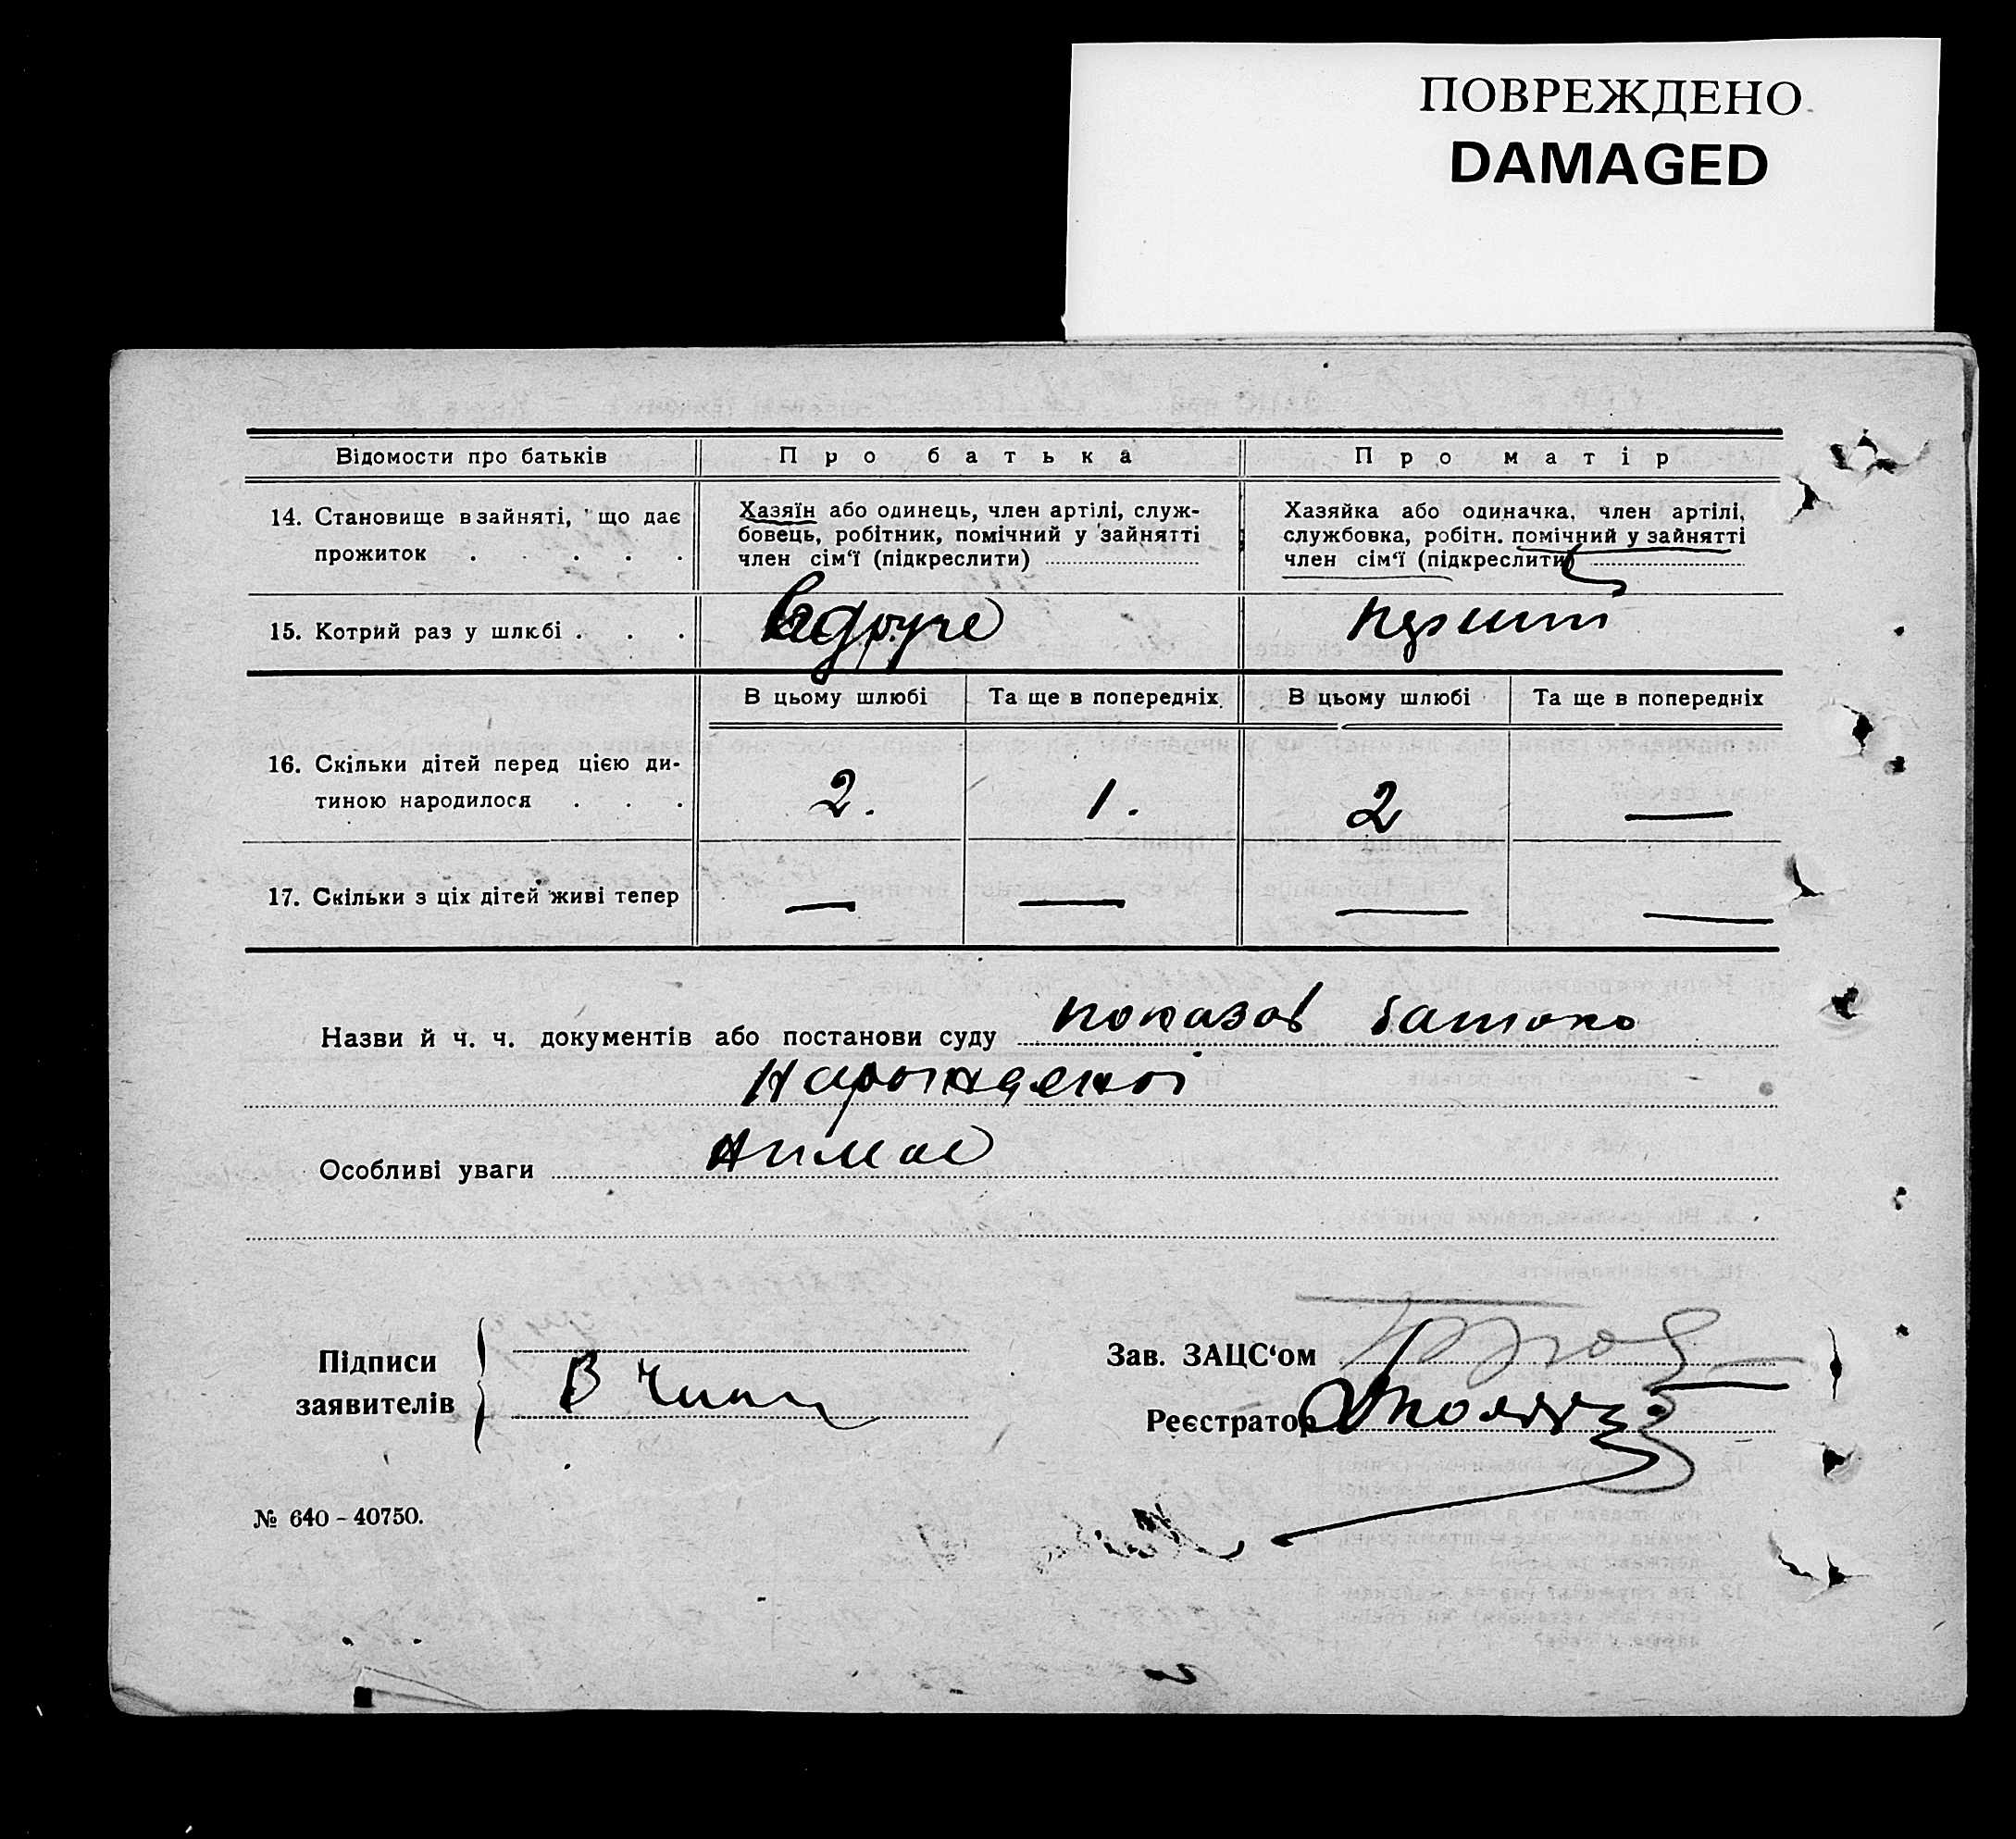 ПОВРЕЖДЕНО
DAMAGED
Відомости про батьків
Про батька
Про матір
14. Становище в зайняті, що дає
прожиток . . . .
Хазяїн або одинець, член артілі, служ-
бовець, робітник, помічний у зайнятті
член сім‘ї (підкреслити)
Хазяйка або одиначка, член артілі,
службовка, робітн. помічний у зайнятті
член сім‘ї (підкреслити)
15. Котрий раз у шлюбі . . .
вдруге
перший
В цьому шлюбі
Та ще в попередніх
В цьому шлюбі
Та ще в попередніх
16. Скільки дітей перед цією ди-
тиною народилося . . .
2.
1.
2
—
17. Скільки з ціх дітей живі тепер
— — — —
Назви й ч. ч. документів або постанови суду показав батько
Особливі уваги
Підписи
заявителів
В
Зав. ЗАЦС‘ом
Реєстратор
№ 640 - 40750.